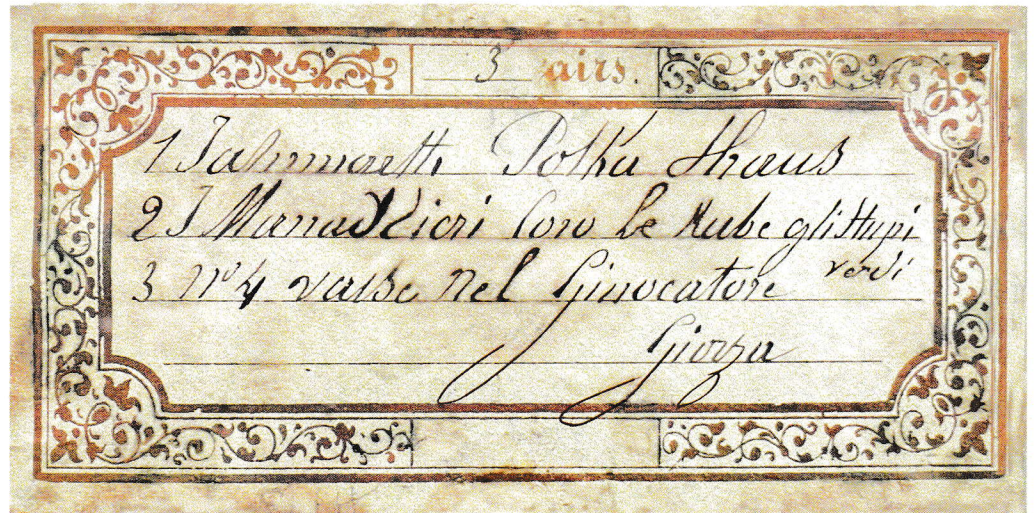 3 airs.
1 Polka Straus
2 I Masnadieri Coro Le Rube gli Stupi
verdi
3 Nº 4 valse nel Ginocatore
Giorza